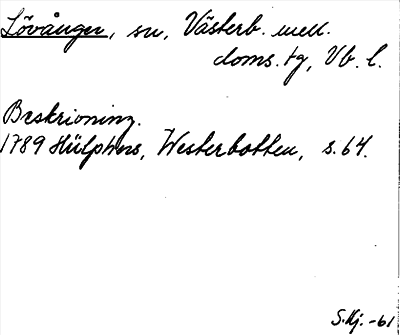 Lövånger, sn, Västerb. mell.
doms. tg, Vb. l.
Beskrivning.
1789 Hülphers, Westerbotten, s. 64.
S. Hj. -61